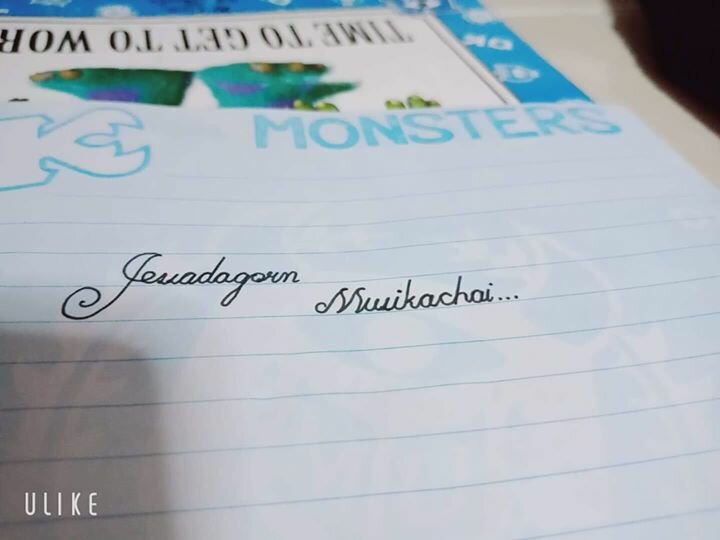 TIME TO GET TO WOR
MONSTERS
Jessadagorn Musikachai...
ULIKE